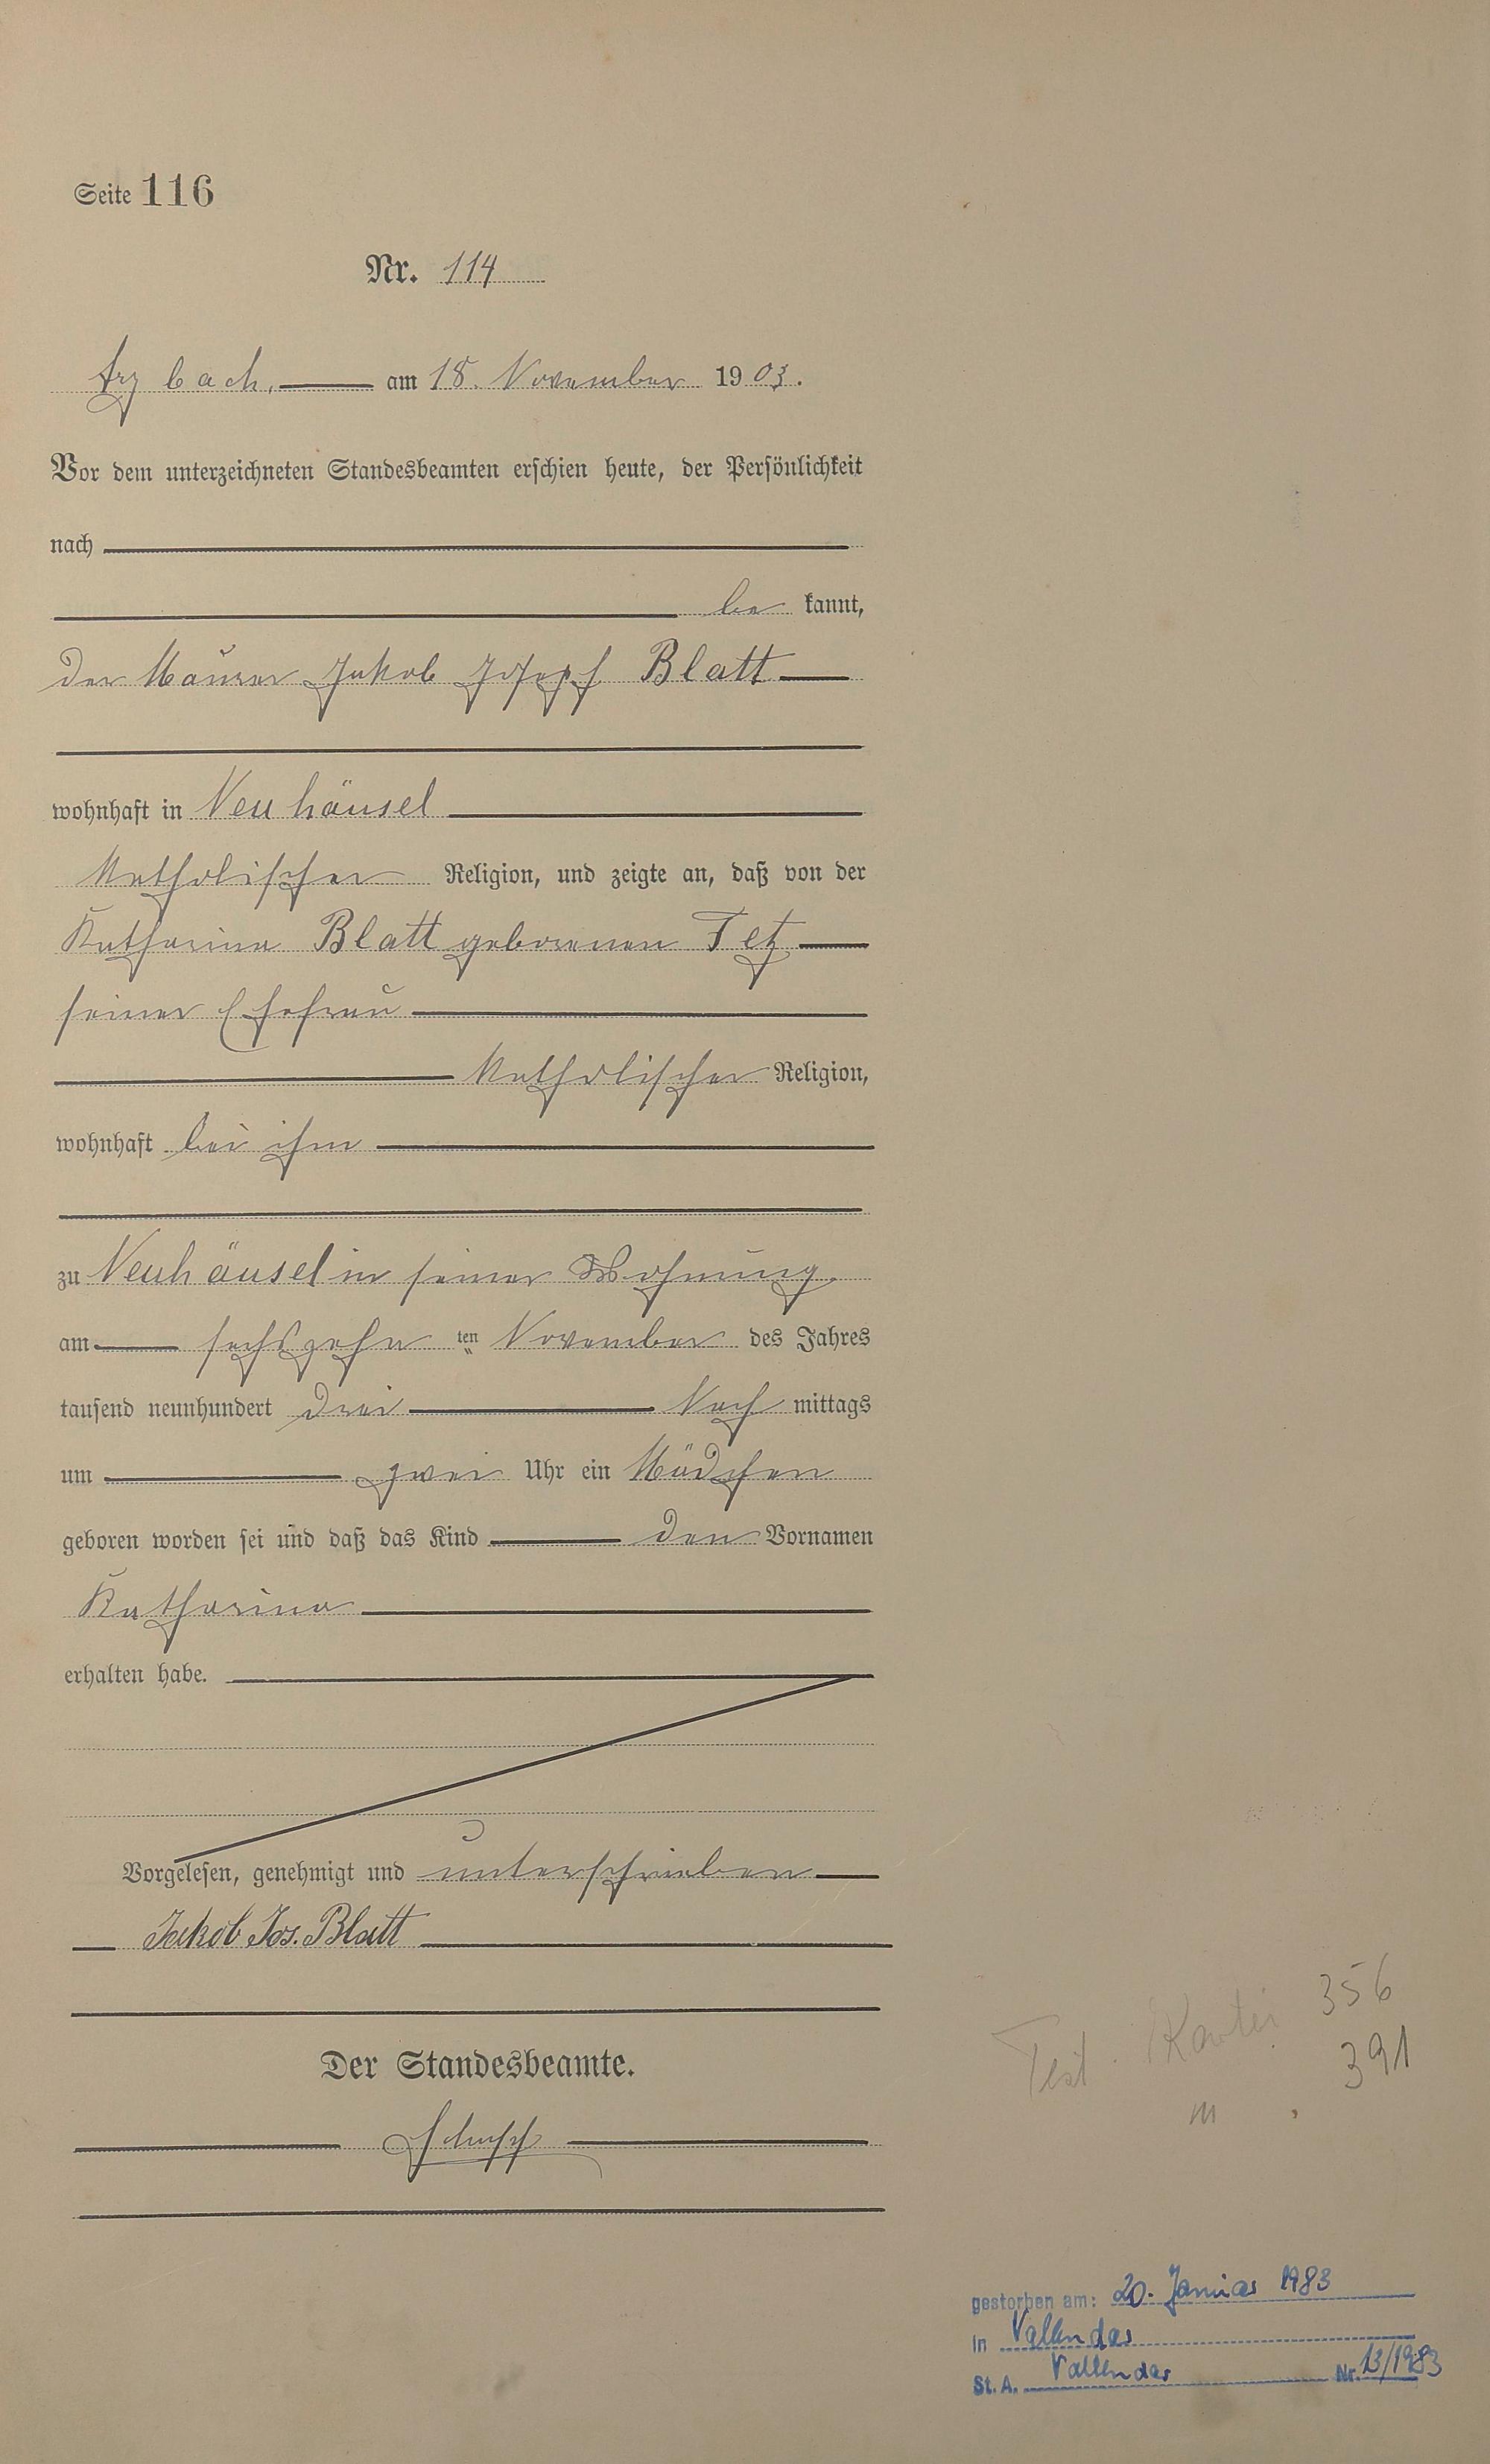 Seite 116
Nr. 114
Arzbach, am 18. November 1903.
Vor dem unterzeichneten Standesbeamten erschien heute, der Persönlichkeit
nach
be kannt,
der Maurer Jakob Josepf Blatt
wohnhaft in Neuhäusel
katholischer Religion, und zeigte an, daß von der
Katharina Blatt geborenen Fetz
seiner Ehefrau
katholischer Religion,
wohnhaft bei ihm
zu Neuhäusel in seiner Wohnung
am sechszehn ten November des Jahres
tausend neunhundert drei Nach mittags
um zwei Uhr ein Mädchen
geboren worden sei und daß das Kind den Vornamen
Katharina
erhalten habe.
Vorgelesen, genehmigt und unterschrieben
Jakob Jos. Blatt
Der Standesbeamte.
Test. Kartei 356
391
gestorben am: 20. Januar 1983
in Vallendar
St. A. Vallendar Nr. 13/1983